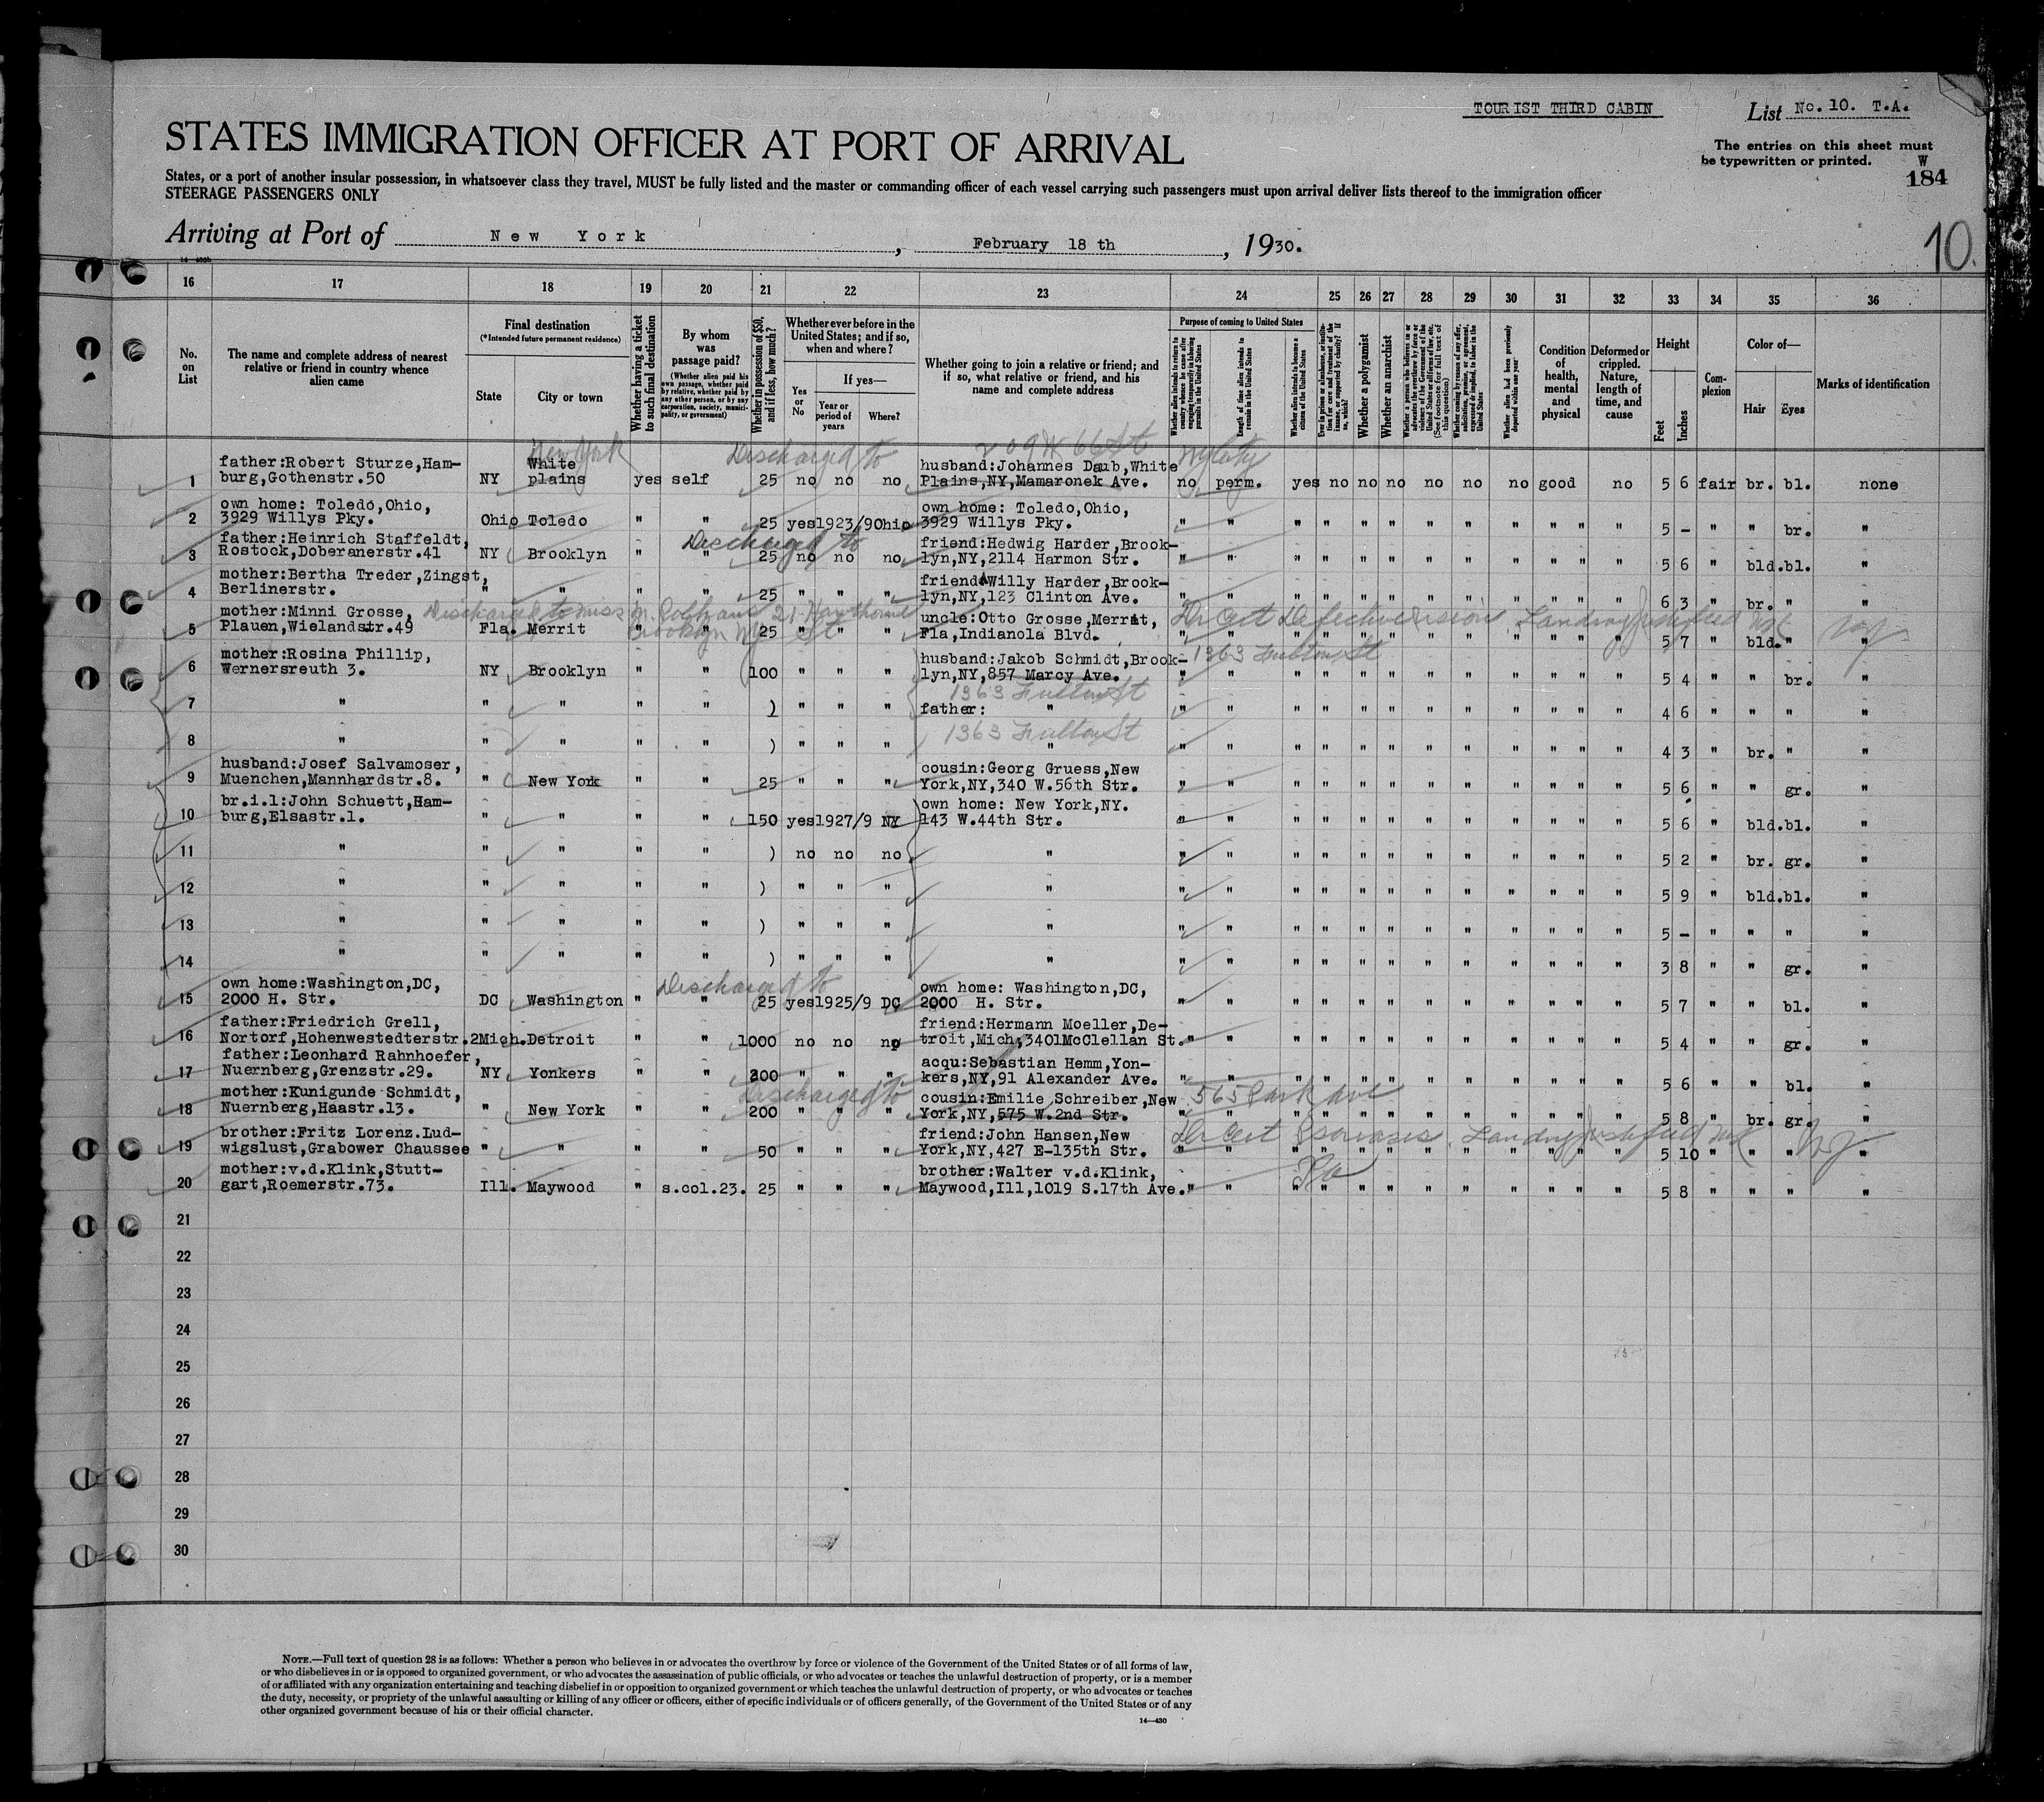 TOURIST THIRD CABIN
List No. 10. T.A.
STATES IMMIGRATION OFFICER AT PORT OF ARRIVAL
The entries on this sheet must
be typewritten or printed.
W
184
States, or a port of another insular possession, in whatsoever class they travel, MUST be fully listed and the master or commanding officer of each vessel carrying such passengers must upon arrival deliver lists thereof to the immigration officer
STEERAGE PASSENGERS ONLY
Arriving at Port of New York, February 18 th, 1930.
10.
16 17 18 19 20 21 22 23 24 25 26 27 28 29 30 31 32 33 34 35 36
No. on List
The name and complete address of nearest relative or friend in country whence alien came
Final destination
(*Intended future permanent residence)
State
City or town
Whether having a ticket to such final destination
By whom was passage paid?
(Whether alien paid his own passage, whether paid by relative, whether paid by any other person, or by any corporation, society, municipality, or government)
Whether in possession of $50, and if less, how much?
Whether ever before in the United States; and if so, when and where?
Yes or No
If yes—
Year or period of years
Where?
Whether going to join a relative or friend; and if so, what relative or friend, and his name and complete address
Purpose of coming to United States
Whether alien intends to return to country whence he came after engaging temporarily in laboring pursuits in the United States
Length of time alien intends to remain in the United States
Whether alien intends to become a citizen of the United States
Whether a polygamist
Whether an anarchist
(See footnote for full text of this question)
Whether alien had been previously deported within one year
Condition of health, mental and physical
Deformed or crippled. Nature, length of time, and cause
Height
Feet
Inches
Complexion
Color of—
Hair
Eyes
Marks of identification
New York Discharged to 209 W 66 St
1 father:Robert Sturze,Ham-
burg,Gothenstr.50 NY White plains yes self 25 no no no husband:Johannes Daub,White
Plains,NY,Mamaronek Ave. no perm. yes no no no no no no good no 5 6 fair br. bl. none
2 own home: Toledo,Ohio,
3929 Willys Pky. Ohio Toledo " " 25 yes 1923/9 Ohio own home: Toledo,Ohio,
3929 Willys Pky. " " " " " " " " " " " " 5 - " " br. "
Discharged to
3 father:Heinrich Staffeldt,
Rostock,Doberanerstr.41 NY Brooklyn " " 25 no no no friend:Hedwig Harder,Brook-
lyn,NY,2114 Harmon Str. " " " " " " " " " " " " 5 6 " bld. bl. "
4 mother:Bertha Treder,Zingst,
Berlinerstr. " " " " 25 " " " friend:Willy Harder,Brook-
lyn,NY,123 Clinton Ave. " " " " " " " " " " " " 6 3 " br. " "
Discharged to miss 21 Hawthorne St Brooklyn NY
Dr Cert Defective vision. Landing
5 mother:Minni Grosse,
Plauen,Wielandstr.49 Fla. Merrit " " 25 " " " uncle:Otto Grosse,Merrit,
Fla,Indianola Blvd. " " " " " " " " " " " " 5 7 " bld. " "
1363 Fulton St
6 mother:Rosina Phillip,
Wernersreuth 3. NY Brooklyn " " (100 " " " husband:Jakob Schmidt,Brook-
lyn,NY,857 Marcy Ave. " " " " " " " " " " " " 5 4 " " br. "
1363 Fulton St
7 " " " " " ) " " " father: " " " " " " " " " " " " " 4 6 " " " "
1363 Fulton St
8 " " " " " ) " " " " " " " " " " " " " " " " 4 3 " br. " "
9 husband:Josef Salvamoser,
Muenchen,Mannhardstr.8. " New York " " 25 " " " cousin:Georg Gruess,New
York,NY,340 W.56th Str. " " " " " " " " " " " " 5 6 " " gr. "
10 br.i.l:John Schuett,Ham-
burg,Elsastr.1. " " " " 150 yes 1927/9 NY own home: New York,NY.
143 W.44th Str. " " " " " " " " " " " " 5 6 " bld. bl. "
11 " " " " " ) no no no " " " " " " " " " " " " " 5 2 " br. gr. "
12 " " " " " ) " " " " " " " " " " " " " " " " 5 9 " bld. bl. "
13 " " " " " ) " " " " " " " " " " " " " " " " 5 - " " " "
14 " " " " " ) " " " " " " " " " " " " " " " " 3 8 " " gr. "
Discharged to
15 own home:Washington,DC,
2000 H. Str. DC Washington " " 25 yes 1925/9 DC own home: Washington,DC,
2000 H. Str. " " " " " " " " " " " " 5 7 " " bl. "
16 father:Friedrich Grell,
Nortorf,Hohenwestedterstr.2 Mich. Detroit " " 1000 no no no friend:Hermann Moeller,De-
troit,Mich,3401McClellan St. " " " " " " " " " " " " 5 4 " " gr. "
17 father:Leonhard Rahnhoefer,
Nuernberg,Grenzstr.29. NY Yonkers " " 200 " " " acqu:Sebastian Hemm,Yon-
kers,NY,91 Alexander Ave. " " " " " " " " " " " " 5 6 " " bl. "
Discharged to 565 Park Ave
18 mother:Kunigunde Schmidt,
Nuernberg,Haastr.13. " New York " " 200 " " " cousin:Emilie Schreiber,New
York,NY,575 W.2nd Str. " " " " " " " " " " " " 5 8 " br. gr. "
Dr Cert Psoriasis. Landing
19 brother:Fritz Lorenz.Lud-
wigslust,Grabower Chaussee " " " " 50 " " " friend:John Hansen,New
York,NY,427 E-135th Str. " " " " " " " " " " " " 5 10 " " " "
20 mother:v.d.Klink,Stutt-
gart,Roemerstr.73. Ill. Maywood " s.col.23. 25 " " " brother:Walter v.d.Klink,
Maywood,Ill,1019 S.17th Ave. " " " " " " " " " " " " 5 8 " " " "
21
22
23
24
25
26
27
28
29
30
NOTE.—Full text of question 28 is as follows: Whether a person who believes in or advocates the overthrow by force or violence of the Government of the United States or of all forms of law,
or who disbelieves in or is opposed to organized government, or who advocates the assassination of public officials, or who advocates or teaches the unlawful destruction of property, or is a member
of or affiliated with any organization entertaining and teaching disbelief in or opposition to organized government or which teaches the unlawful destruction of property, or who advocates or teaches
the duty, necessity, or propriety of the unlawful assaulting or killing of any officer or officers, either of specific individuals or of officers generally, of the Government of the United States or of any
other organized government because of his or their official character.
14—430